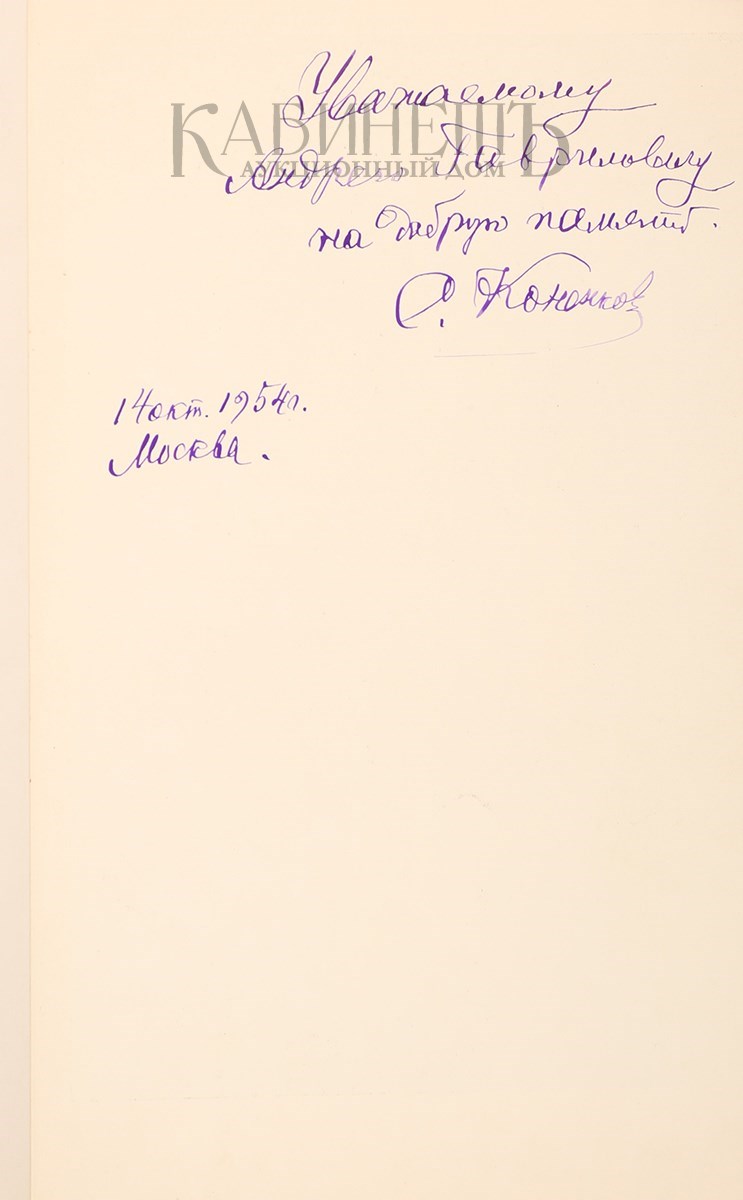 Уважаемому
КАБИНЕТЪ
АУКЦИОННЫЙ ДОМ
Андрею Гавриловичу
на добрую память.
С. Коненков
14 окт. 1954 г.
Москва.